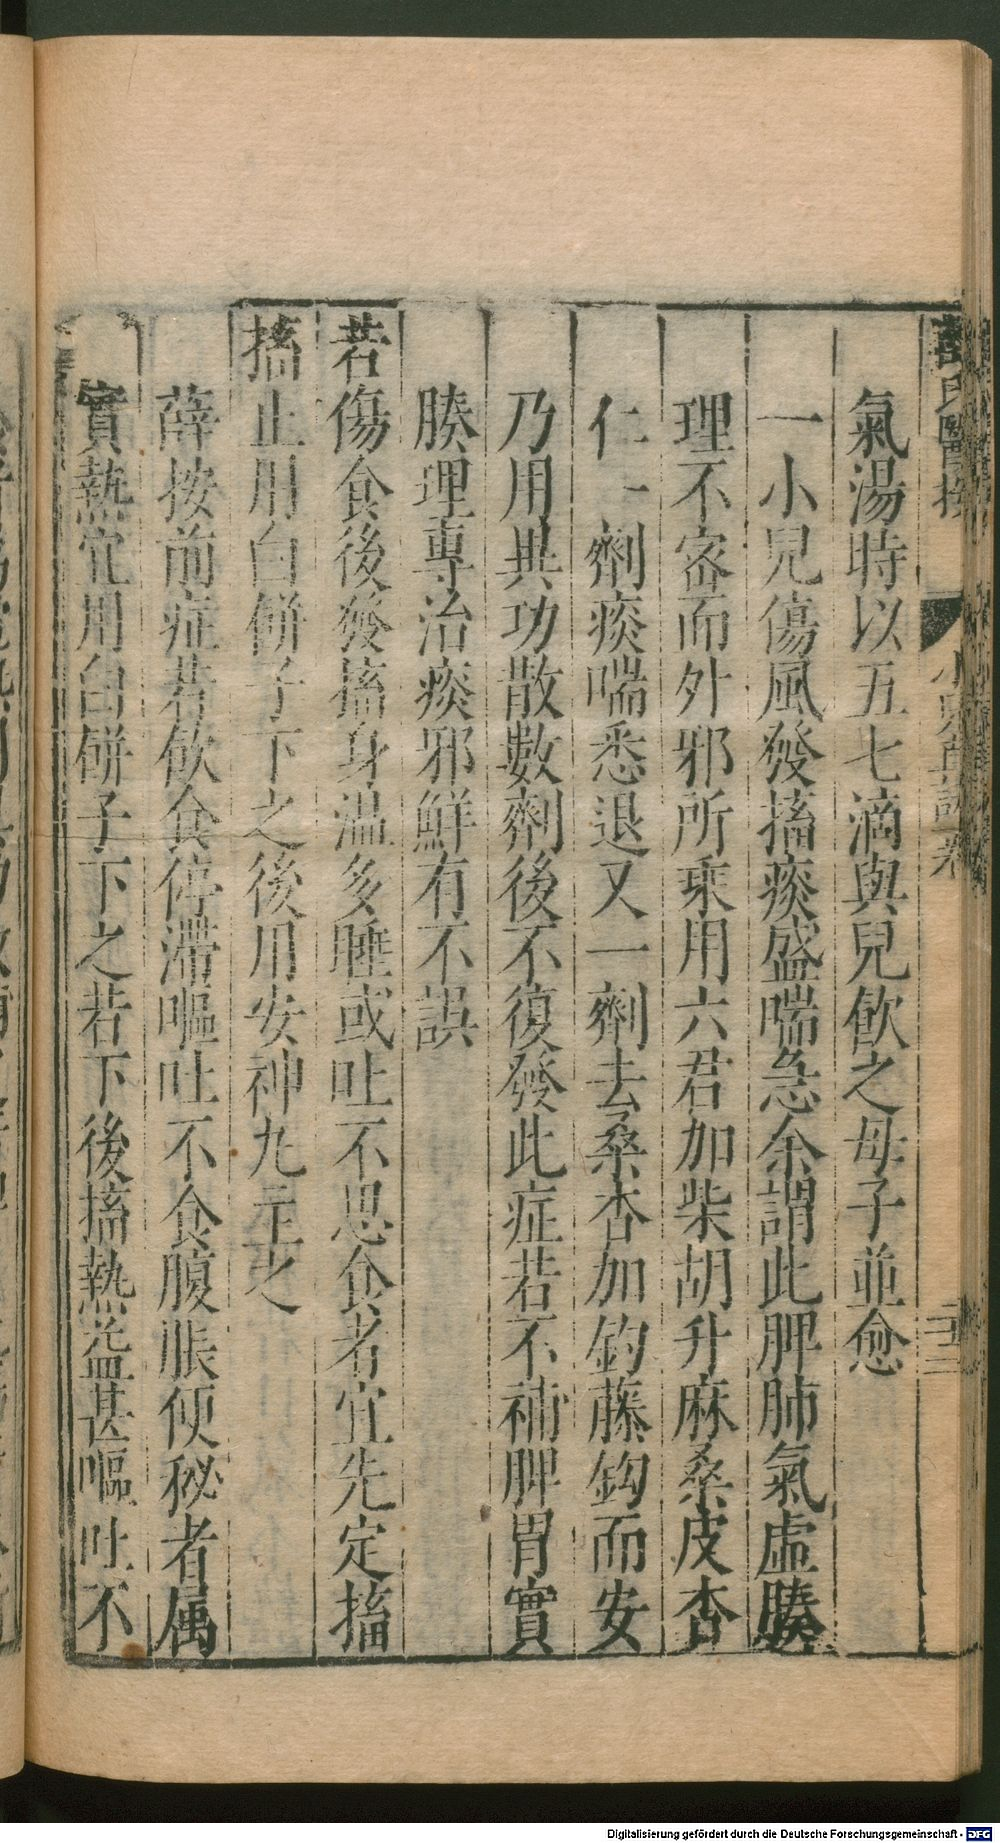 薛氏醫按
小兒直訣卷
氣湯時以五七滴與兒飲之母子並愈
一小兒傷風發搐痰盛喘急余謂此脾肺氣虛腠
理不密而外邪所乘用六君加柴胡升麻桑皮杏
仁一劑痰喘悉退又一劑去桑杏加鈎藤鈎而安
乃用異功散數劑後不復發此症若不補脾胃實
腠理專治痰邪鮮有不誤
若傷食後發搐身温多睡或吐不思食者宜先定搐
搐止用白餅子下之後用安神丸主之
薛按前症若飲食停滯嘔吐不食腹脹便秘者属
實熱宜用白餅子下之若下後搐熱益甚嘔吐不
Digitalisierung gefördert durch die Deutsche Forschungsgemeinschaft - DFG